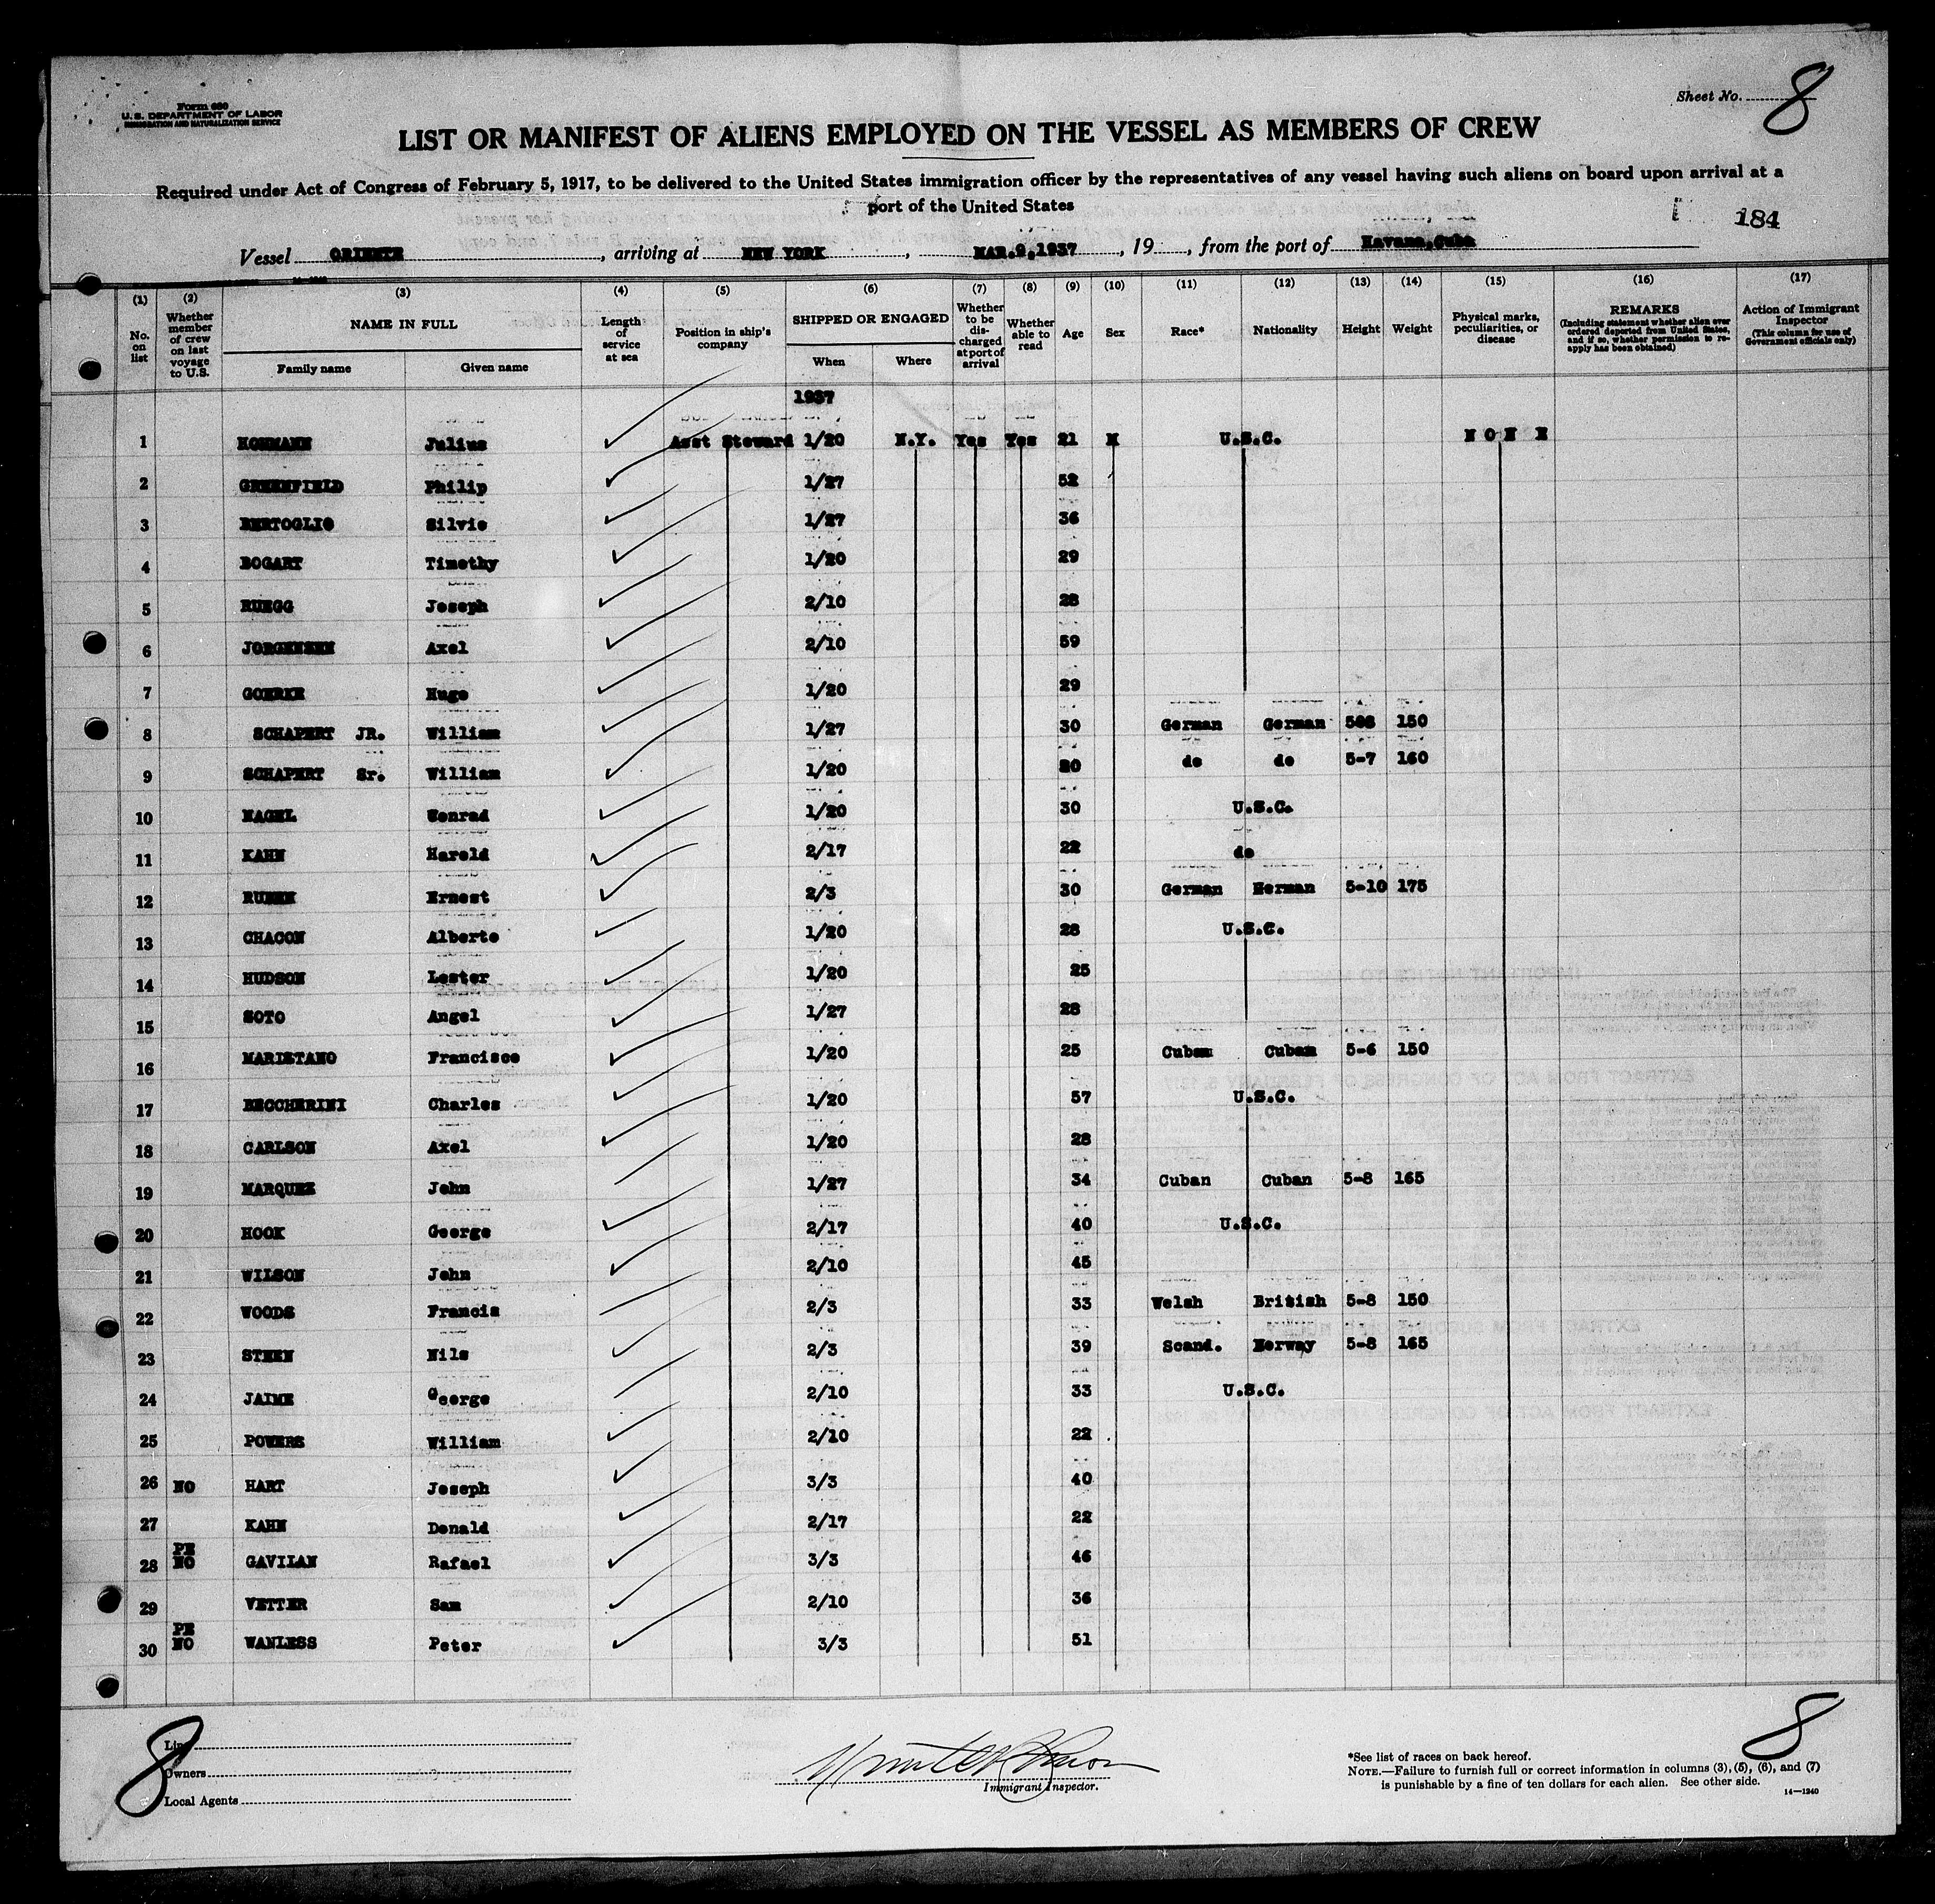 Form 680
U. S. DEPARTMENT OF LABOR
IMMIGRATION AND NATURALIZATION SERVICE
Sheet No. 8
LIST OR MANIFEST OF ALIENS EMPLOYED ON THE VESSEL AS MEMBERS OF CREW
Required under Act of Congress of February 5, 1917, to be delivered to the United States immigration officer by the representatives of any vessel having such aliens on board upon arrival at a
port of the United States
184
Vessel ORIENTE, arriving at NEW YORK, MAR.9,1937, 19, from the port of Havana,Cuba
(1) (2) (3) (4) (5) (6) (7) (8) (9) (10) (11) (12) (13) (14) (15) (16) (17)
No. on list
Whether member of crew on last voyage to U.S.
NAME IN FULL
Family name Given name
Length of service at sea
Position in ship's company
SHIPPED OR ENGAGED
When Where
Whether to be discharged at port of arrival
Whether able to read
Age
Sex
Race*
Nationality
Height
Weight
Physical marks, peculiarities, or disease
REMARKS
(Including statement whether alien ever ordered deported from United States, and if so, whether permission to reapply has been obtained)
Action of Immigrant Inspector
(This column for use of Government officials only)
1937
1 Julius Asst Steward 1/20 N.Y. Yes Yes 21 M U.S.C. N O N E
2 GREENFIELD Philip 1/27 52
3 BERTOGLIO Silvio 1/27 36
4 BOGART Timothy 1/20 29
5 RUEGG Joseph 2/10 28
6 JORGENSEN Axel 2/10 59
7 GOERKE Hugo 1/20 29
8 SCHAPERT JR. William 1/27 30 German German 508 150
9 SCHAPERT Sr. William 1/20 20 do do 5-7 160
10 NAGEL Conrad 1/20 30 U.S.C.
11 KAHN Harold 2/17 22 do
12 Ernest 2/3 30 German Herman 5-10 175
13 CHACON Alberto 1/20 28 U.S.C.
14 HUDSON Lester 1/20 25
15 SOTO Angel 1/27 28
16 MARISTANO Francisco 1/20 25 Cuban Cuban 5-6 150
17 BECCHERINI Charles 1/20 57 U.S.C.
18 CARLSON Axel 1/20 28
19 MARQUEZ John 1/27 34 Cuban Cuban 5-8 165
20 HOOK George 2/17 40 U.S.C.
21 WILSON John 2/10 45
22 WOODS Francis 2/3 33 Welsh British 5-8 150
23 STEEN Nils 2/3 39 Scand. Norway 5-8 165
24 JAIME George 2/10 33 U.S.C.
25 POWERS William 2/10 22
26 NO HART Joseph 3/3 40
27 KAHN Donald 2/17 22
28 PE NO GAVILAN Rafael 3/3 46
29 VETTER Sam 2/10 36
30 PE NO WANLESS Peter 3/3 51
8
8
Line
Owners
Local Agents
Immigrant Inspector.
*See list of races on back hereof.
NOTE.—Failure to furnish full or correct information in columns (3), (5), (6), and (7)
is punishable by a fine of ten dollars for each alien. See other side.
14—1240